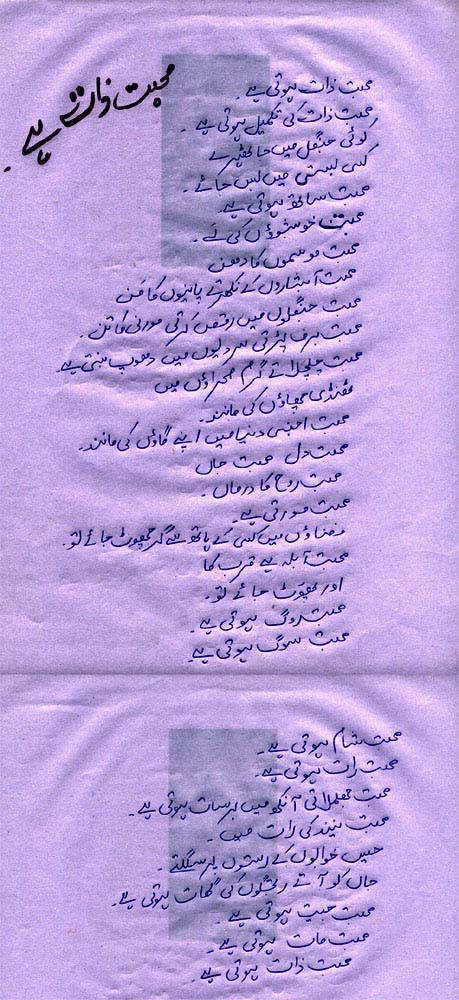 محبت ذات ہے۔
محبت ذات ہوتی ہے۔
محبت ذات کی تکمیل ہوتی ہے۔
کوئی جنگل میں جا ٹھہرے
کسی بستی میں بس جائے۔
محبت ساتھ ہوتی ہے
محبت خوشبوؤں کی لَے۔
محبت موسموں کا دھن
محبت آبشاروں کے نکھرتے پانیوں کا مَن
محبت جنگلوں میں رقص کرتی مورنی کا تن
محبت برف پڑتی سردیوں میں دھوپ بنتی ہے
محبت چلچلاتے گرم صحراؤں میں
ٹھنڈی چھاؤں کی مانند۔
محبت اجنبی دنیا میں اپنے گاؤں کی مانند۔
محبت دل محبت جاں
محبت روح کا درماں۔
محبت مورتی ہے۔
کسی کے ہاتھ سے گر چھوٹ جائے تو۔
محبت آبلہ ہے کرب کا
اور پھوٹ جائے تو۔
محبت روگ ہوتی ہے۔
محبت سوگ ہوتی ہے۔
محبت شام ہوتی ہے۔
محبت رات ہوتی ہے۔
محبت جھلملاتی آنکھ میں برسات ہوتی ہے۔
محبت نیند کی رات میں۔
حسیں خوابوں کے رستوں پر سلگتے۔
جاں کو آتے رتجگوں کی گھات ہوتی ہے۔
محبت جیت ہوتی ہے۔
محبت مات ہوتی ہے۔
محبت ذات ہوتی ہے۔